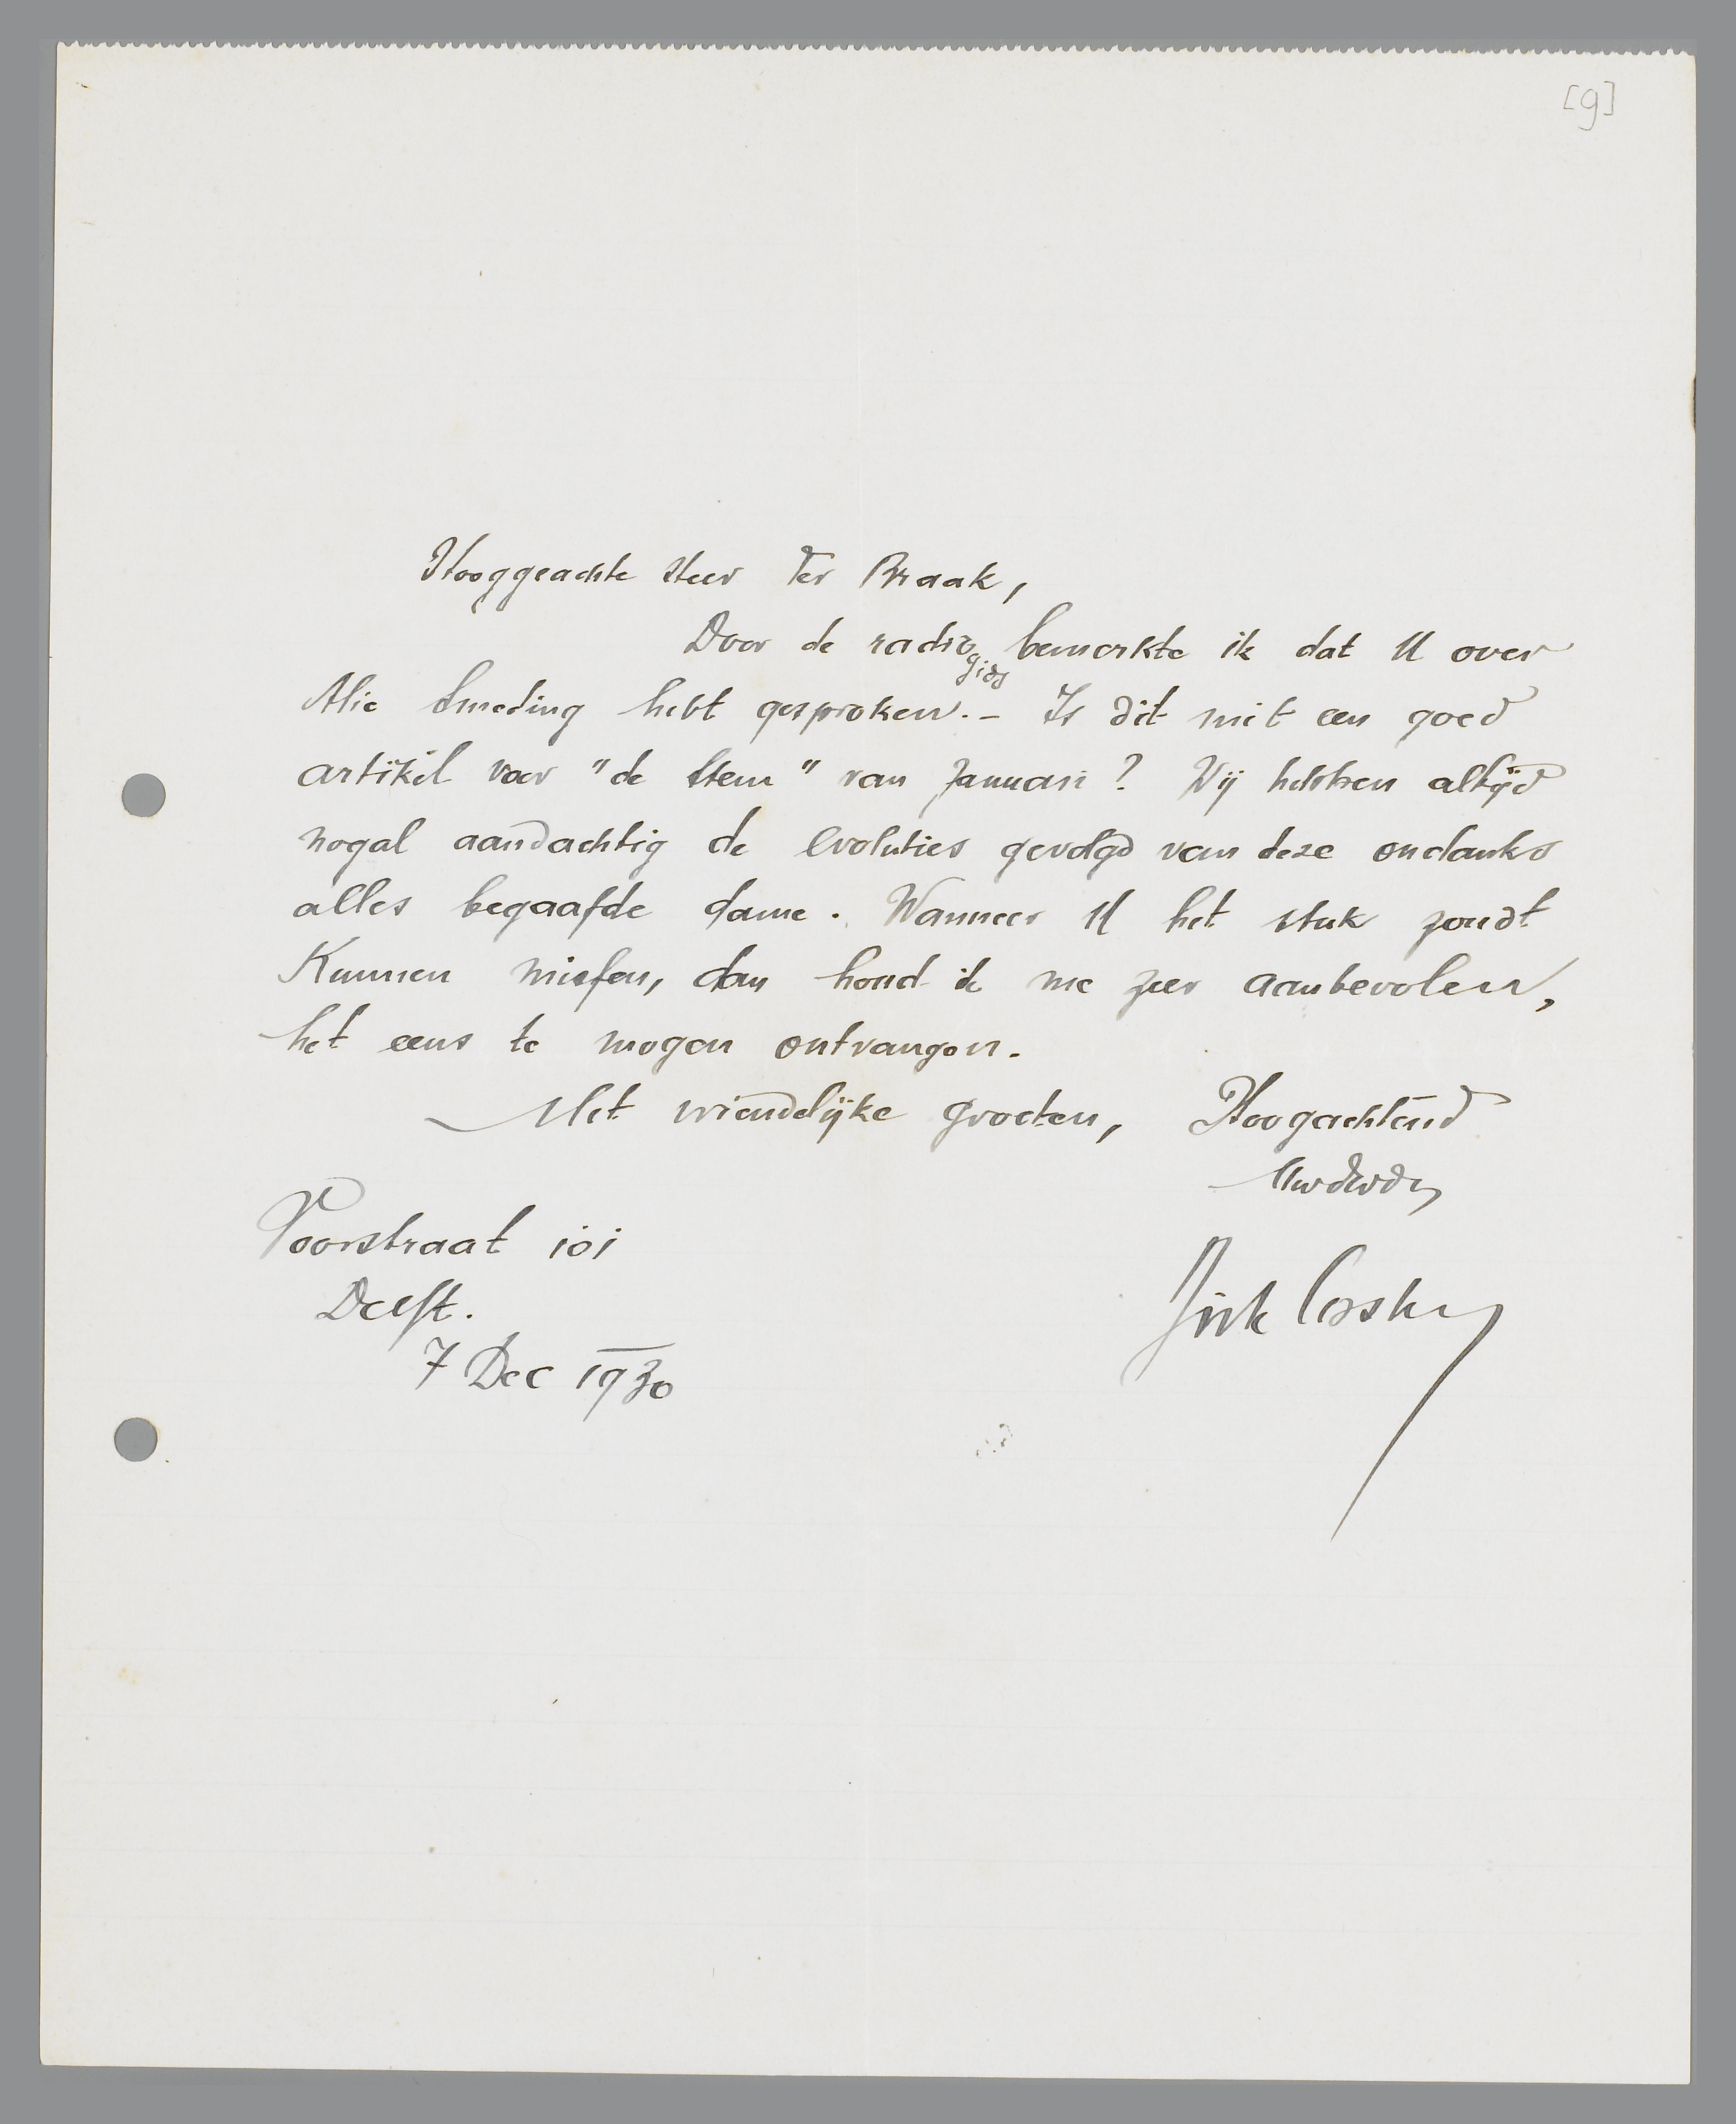 [9]
Hooggeachte Heer Ter Braak,
Door de radiogids bemerkte ik dat U over
Alie Smeding hebt gesproken. – Is dit niet een goed
artikel voor "de Stem" van Januari? Wij hebben altijd
nogal aandachtig de evoluties gevolgd van deze ondanks
alles begaafde dame. Wanneer U het stuk zoudt
Kunnen missen, dan houd ik me zeer aanbevolen,
het eens te mogen ontvangen.
Met vriendelijke groeten, Hoogachtend
Dirk Coster
Voorstraat 101
Delft.
7 Dec 1930